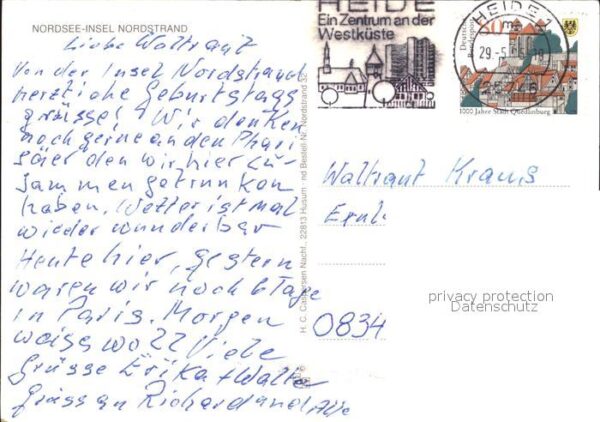 NORDSEE-INSEL NORDSTRAND
Liebe Waltraut
Von der Insel Nordstrand
herzliche Geburtstags
grüsse! Wir denken
noch gerne an den Phari
säer den wir hier zu-
sammen getrunken
haben. Wetter ist mal
wieder wunderbar
Heute hier, gestern
waren wir noch 6 Tage
in Paris. Morgen
Viele
Grüsse Erika + Walter
Gruss an Richard and Alle
H. C. Caspersen Nachf., 22813 Husum
nd Bestell-Nr. Nordstrand 32
HEIDE
Ein Zentrum an der
Westküste
HEIDE 1
29.-5.
Deutsche
Bundespost
1000 Jahre Stadt Quedlinburg
Waltraut Kraus
0834
privacy protection
Datenschutz